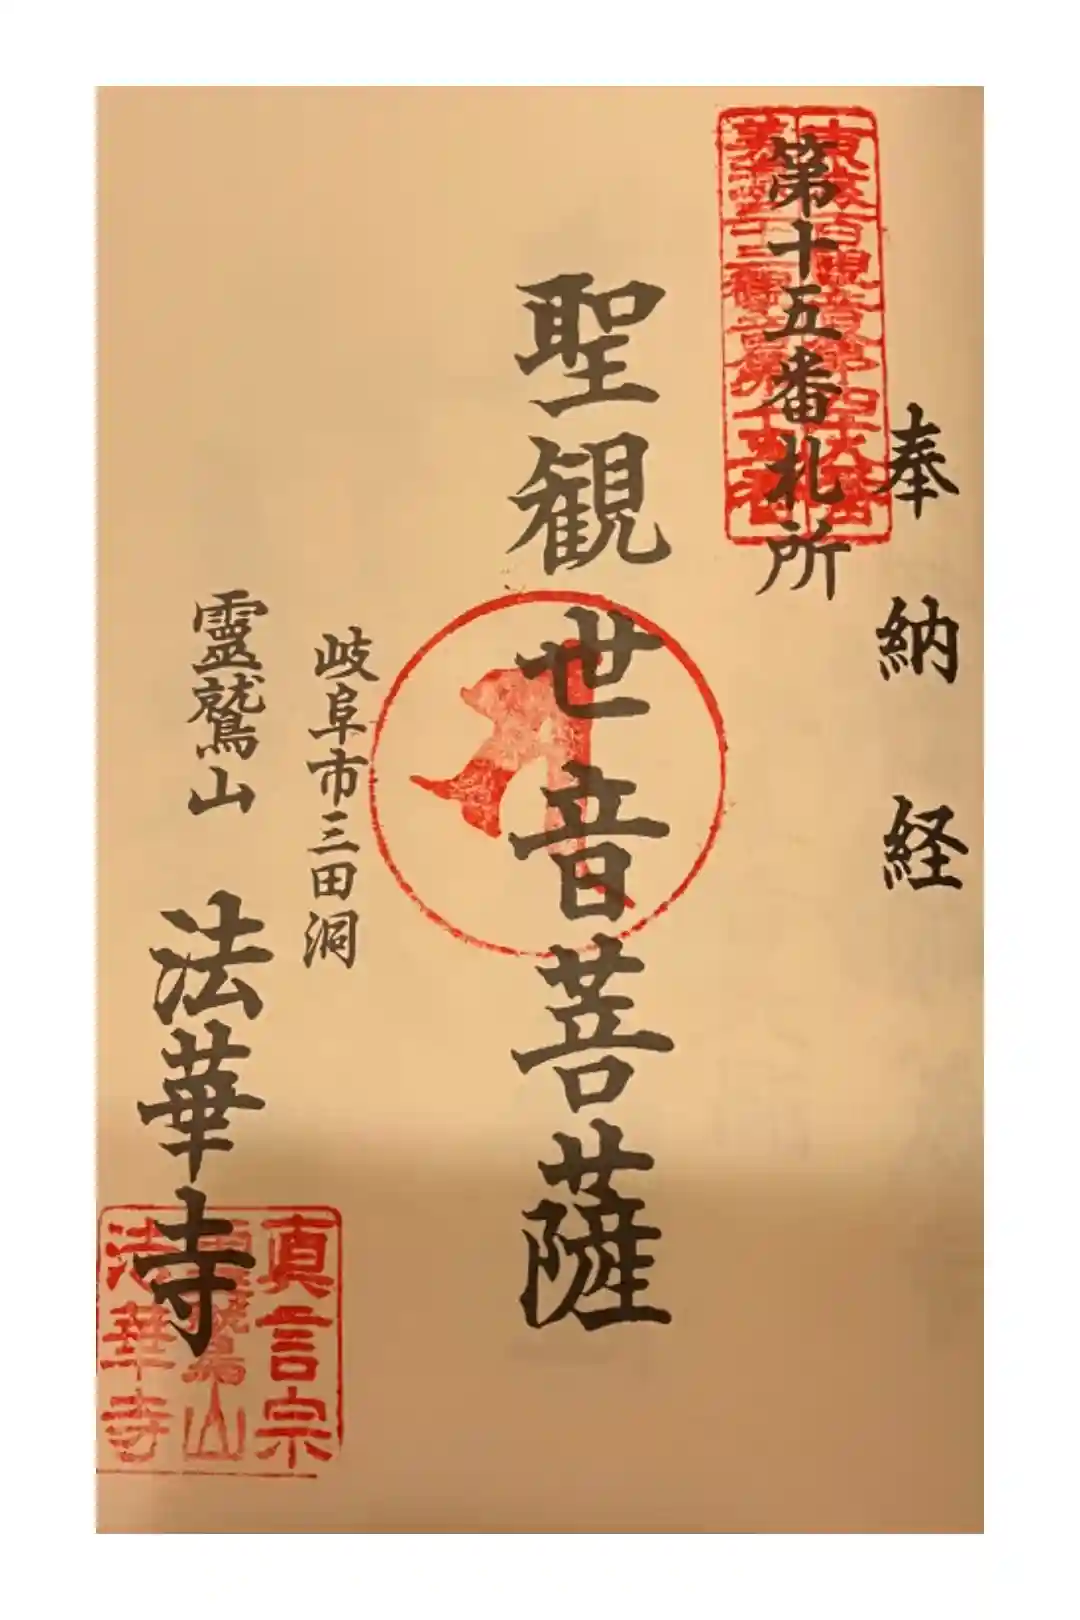 奉納経
第十五番札所
聖観世音菩薩
岐阜市三田洞
靈鷲山
法華寺
真言宗
靈鷲山
法華寺